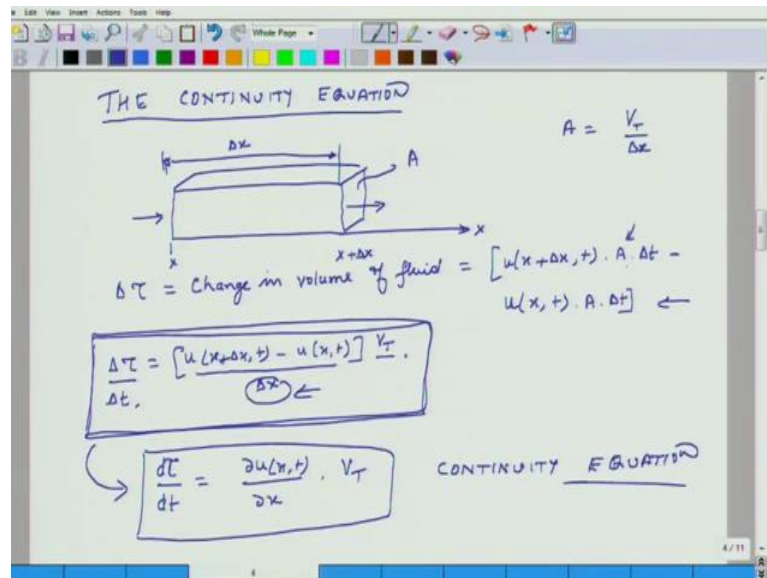 Edit View Insert Actions Tools Help
Whole Page
B I
THE CONTINUITY EQUATION
A = V_T / Δx
Δx
A
x
x x+Δx
Δτ = Change in volume of fluid = [u(x+Δx, t) . A . Δt -
u(x, t) . A . Δt] ←
Δτ / Δt, = [u(x+Δx, t) - u(x, t)] / Δx V_T . ←
dτ / dt = ∂u(x, t) / ∂x . V_T CONTINUITY EQUATION
4 / 11
4